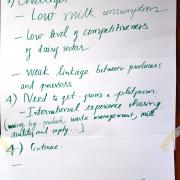 3) Challenges
- Low milk consumption
- Low level of competitiveness
of dairy sector
- Weak linkage between producers
and processors
4) Need to get from a platform
- International experience sharing
by-product, waste management, milk
quality and safety
4) Guidance
-